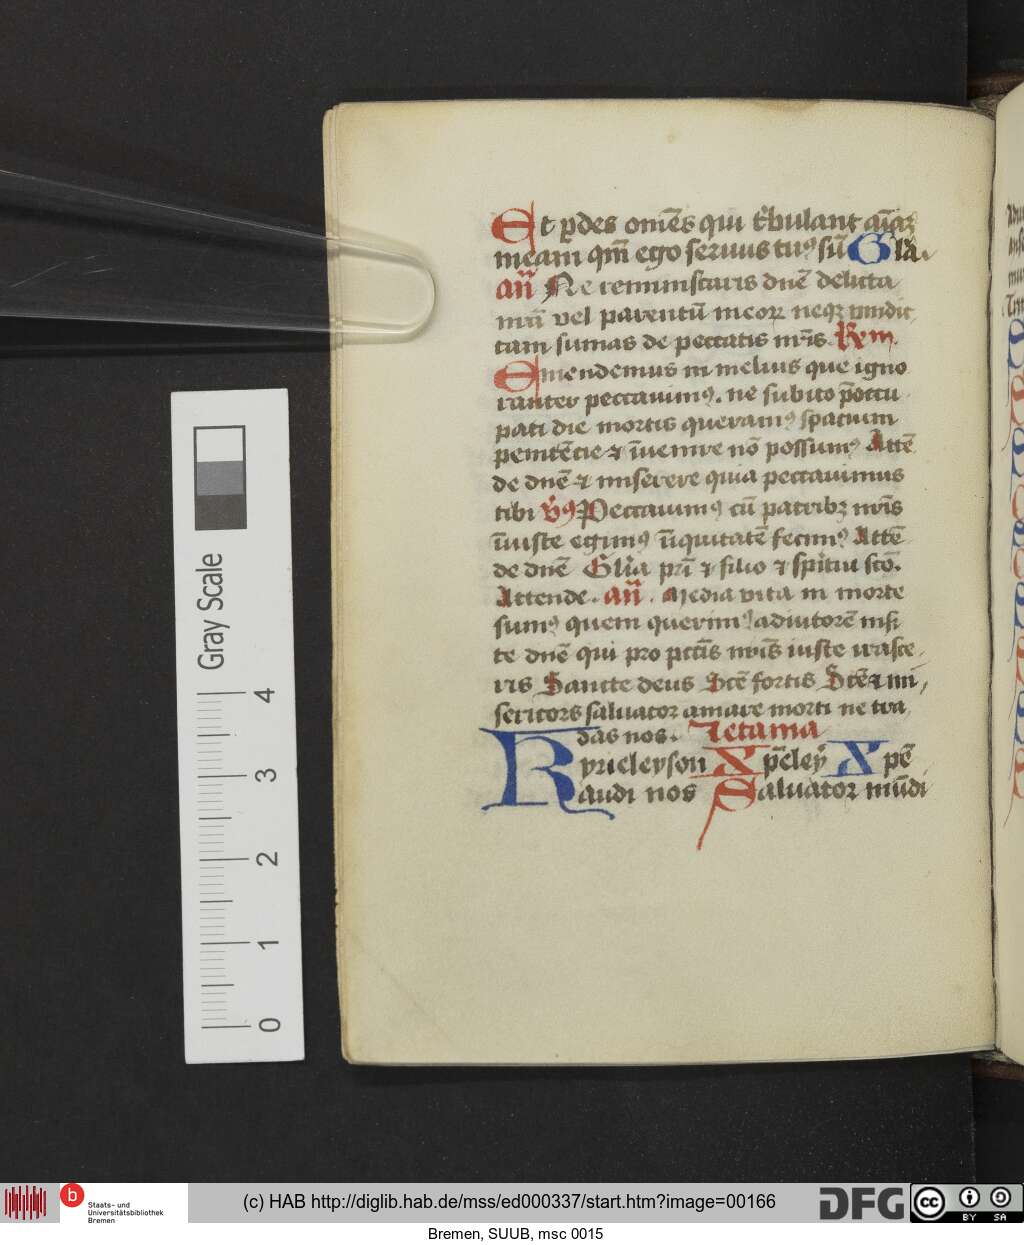 Et ꝑdes om̄es qui t̓bulant aīaȝ
meam qm̄ ego seruus tuꝰ sū Gla.
an̄ Ne reminiscaris dn̄e delicta
mr̄i vel parentū meoꝝ neqȝ vindic
tam sumas de peccatis nr̄is. Rym
Emendemus in melius que igno
ranter peccauimꝰ. ne subito p̄occu
pati die mortis queramꝰ spatium
penitēcie ⁊ īuenire nō possimꝰ Attē
de dn̄e ⁊ miserere quia peccauimus
tibi v̓ꝰ Peccauimꝰ cū patribȝ nr̄is
īiuste egimꝰ īiquitatē fecimꝰ Attē
de dn̄e Gl̓ia pr̄i ⁊ filio ⁊ sp̄itui sc̄o.
Attende. an̄. Media vita in morte
sumꝰ quem querimꝰ adiutorē nisi
te dn̄e qui pro pcc̄is nr̄is iuste irasce
ris Sancte deus Sc̄e fortis Sc̄e ⁊ mi
sericors saluator amare morti ne tra
das nos. Letania
Kyrieleyson Xp̄eley̓ Xpē
audi nos Saluator mūdi
Gray Scale
4
3
2
1
0
b
Staats- und
Universitätsbibliothek
Bremen
(c) HAB http://diglib.hab.de/mss/ed000337/start.htm?image=00166
DFG
cc
BY SA
Bremen, SUUB, msc 0015